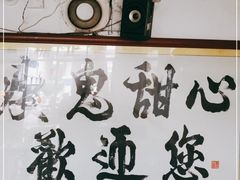 魔鬼甜心
歡迎您